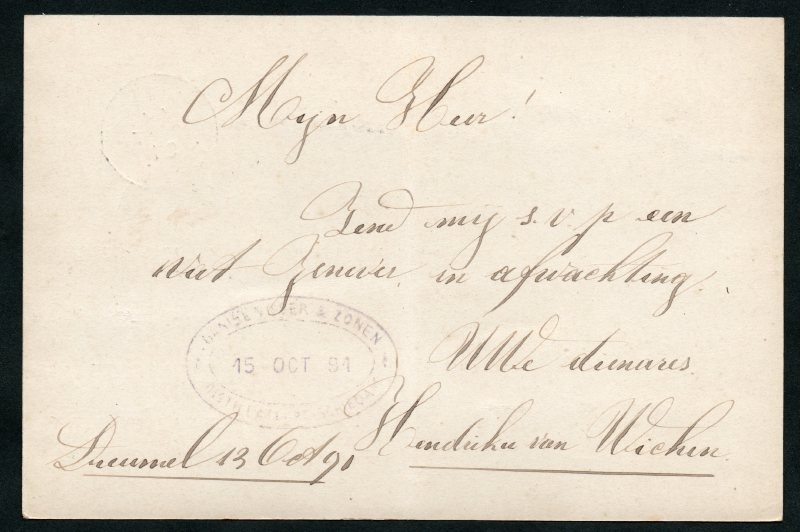 Mijn Heer!
Zend mij s. v. p een
vat Genever, in afwachting.
UWe dienares
& ZONEN
15 OCT 91
Hendrika van Wichen
Dreumel 13 Oct 91